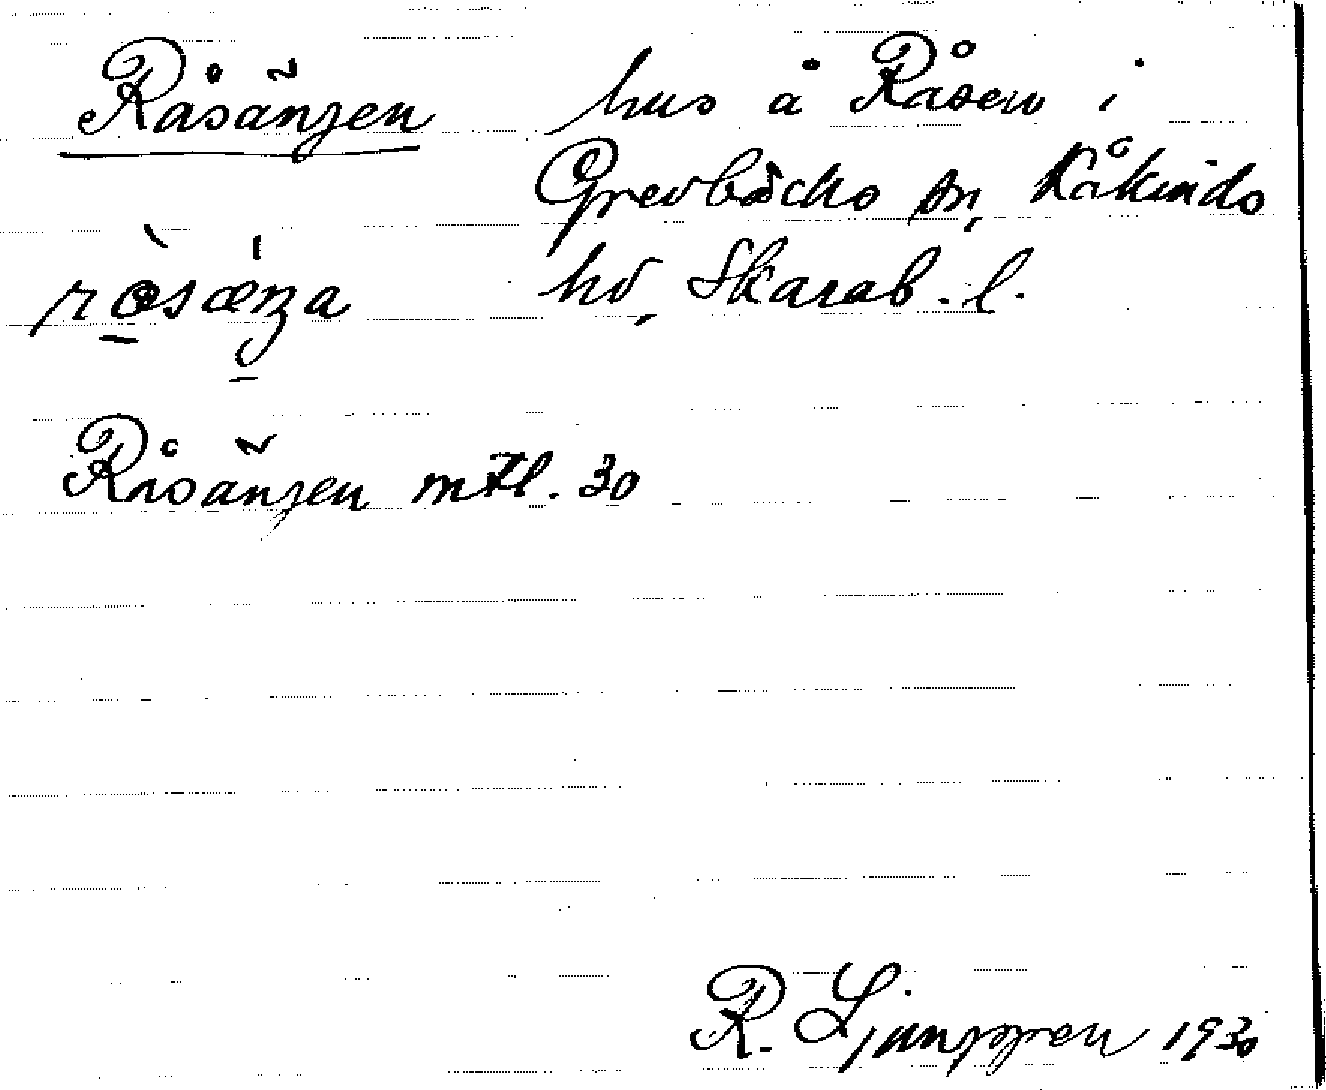 Råsängen hus å Råsen i
Grevbäcks sn, Kåkinds
hd, Skarab. l.
Råsängen mtl. 30
R. Ljunggren 1930